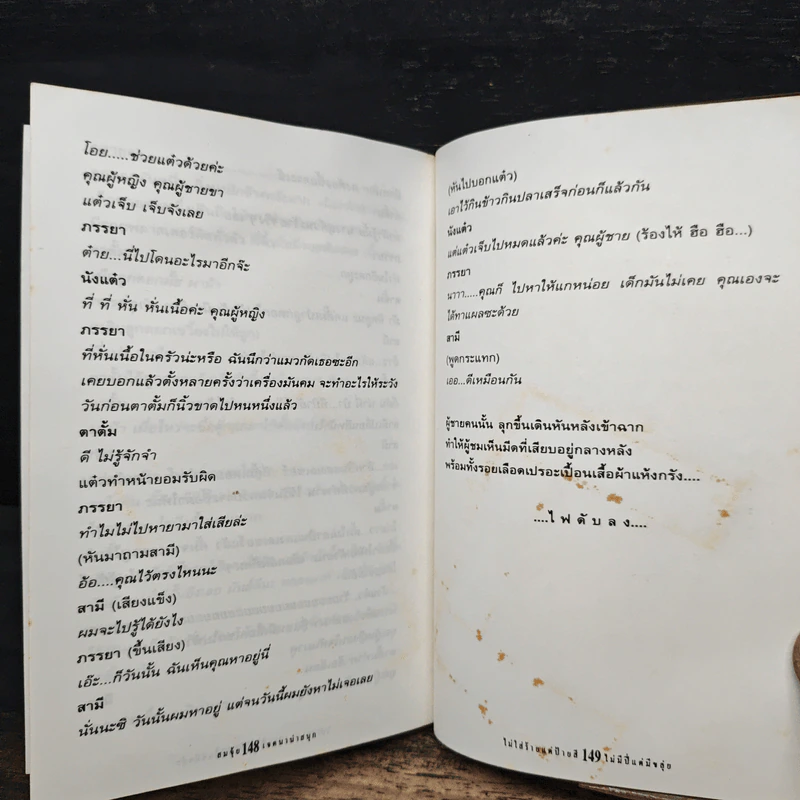 โอย.....ช่วยแต๋วด้วยค่ะ
คุณผู้หญิง คุณผู้ชายขา
แต๋วเจ็บ เจ็บจังเลย
ภรรยา
ต๋าย...นี่ไปโดนอะไรมาอีกจ๊ะ
นังแต๋ว
ที่ ที่ หั่น หั่นเนื้อค่ะ คุณผู้หญิง
ภรรยา
ที่หั่นเนื้อในครัวน่ะหรือ ฉันนึกว่าแมวกัดเธอซะอีก
เคยบอกแล้วตั้งหลายครั้งว่าเครื่องมันคม จะทำอะไรให้ระวัง
วันก่อนตาตั้มก็นิ้วขาดไปหนหนึ่งแล้ว
ตาตั้ม
ดี ไม่รู้จักจำ
แต๋วทำหน้ายอมรับผิด
ภรรยา
ทำไมไม่ไปหายามาใส่เสียล่ะ
(หันมาถามสามี)
อ้อ....คุณไว้ตรงไหนนะ
สามี (เสียงแข็ง)
ผมจะไปรู้ได้ยังไง
ภรรยา (ขึ้นเสียง)
เอ๊ะ...ก็วันนั้น ฉันเห็นคุณหาอยู่นี่
สามี
นั่นนะซิ วันนั้นผมหาอยู่ แต่จนวันนี้ผมยังหาไม่เจอเลย
ฮมจุ้ย 148 เขคนาน่าสนุก
(หันไปบอกแต๋ว)
เอาไว้กินข้าวกินปลาเสร็จก่อนก็แล้วกัน
นังแต๋ว
แต่แต๋วเจ็บไปหมดแล้วค่ะ คุณผู้ชาย (ร้องไห้ ฮือ ฮือ...)
ภรรยา
นาาา.....คุณก็ ไปหาให้แกหน่อย เด็กมันไม่เคย คุณเองจะ
ได้ทาแผลซะด้วย
สามี
(พูดกระแทก)
เออ...ดีเหมือนกัน
ผู้ชายคนนั้น ลุกขึ้นเดินหันหลังเข้าฉาก
ทำให้ผู้ชมเห็นมีดที่เสียบอยู่กลางหลัง
พร้อมทั้งรอยเลือดเปรอะเปื้อนเสื้อผ้าแห้งกรัง....
....ไฟดับลง....
ไม่ใส่ร้ายแต่ป้ายสี 149 ไม่มีปี่แต่มีขลุ่ย